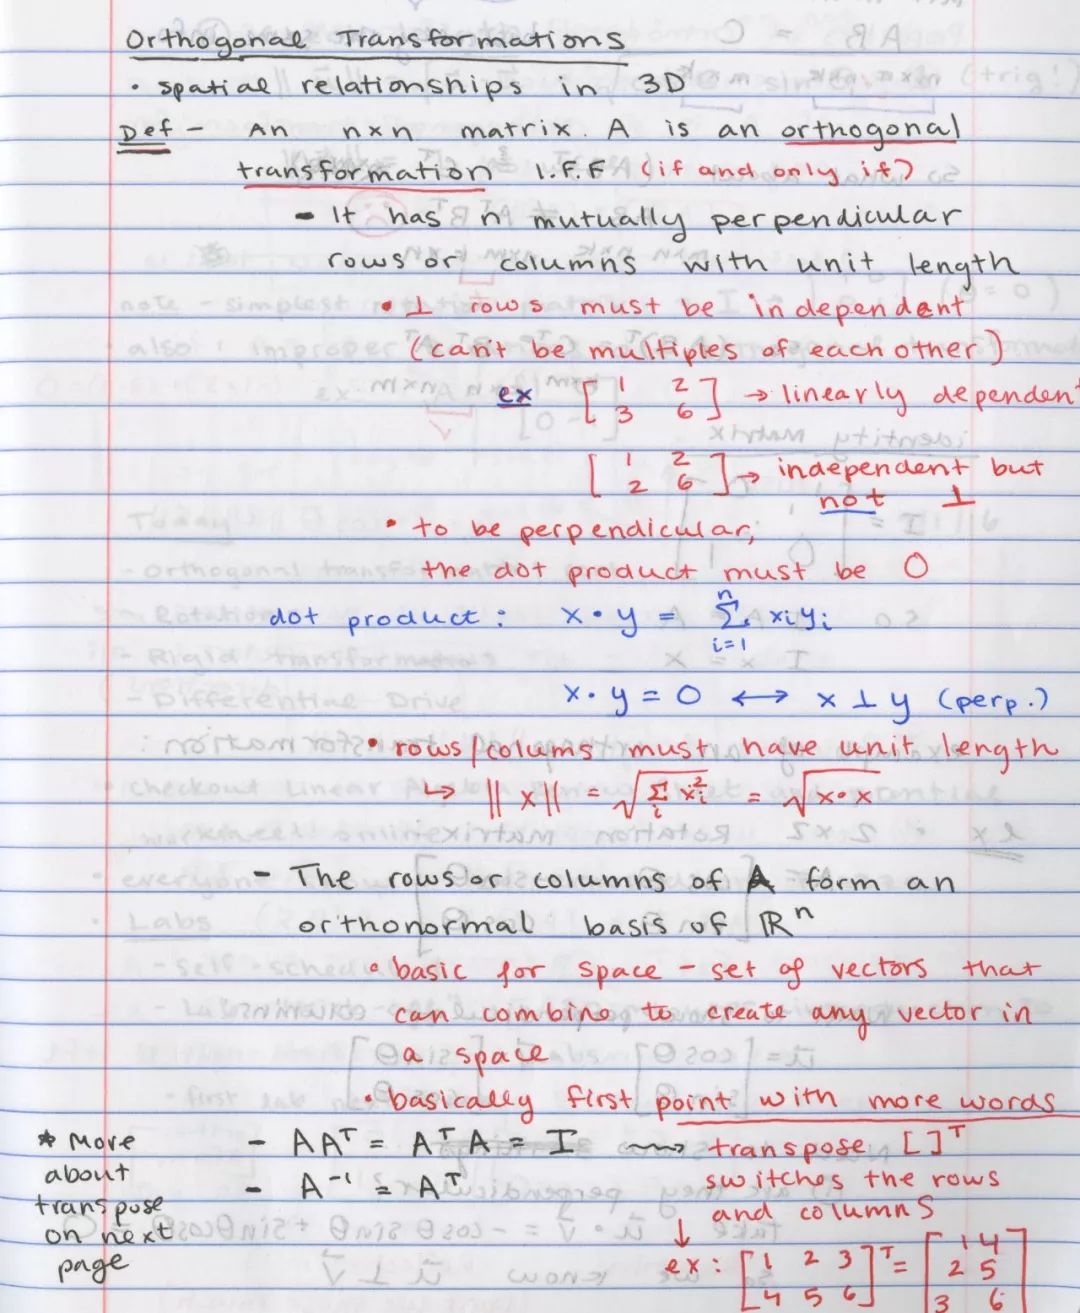 Orthogonal Transformations
• spatial relationships in 3D
Def - An n×n matrix A is an orthogonal
transformation I.F.F (if and only if)
- It has n mutually perpendicular
rows or columns with unit length
• ⊥ rows must be independent
(can't be multiples of each other)
ex [1 2
3 6] → linearly dependent
[1 2
2 6] → independent but
not ⊥
• to be perpendicular,
the dot product must be 0
dot product: x • y = n Σ i=1 xᵢyᵢ
x • y = 0 ↔ x ⊥ y (perp.)
• rows/columns must have unit length
↳ ||x|| = √Σᵢ xᵢ² = √x•x
- The rows or columns of A form an
orthonormal basis of ℝⁿ
• basic for space - set of vectors that
can combine to create any vector in
a space
• basically first point with more words
- AAᵀ = AᵀA = I ⟿ transpose [ ]ᵀ
switches the rows
and columns
- A⁻¹ = Aᵀ
* More
about
transpose
on next
page
↓
ex: [1 2 3
4 5 6]ᵀ = [1 4
2 5
3 6